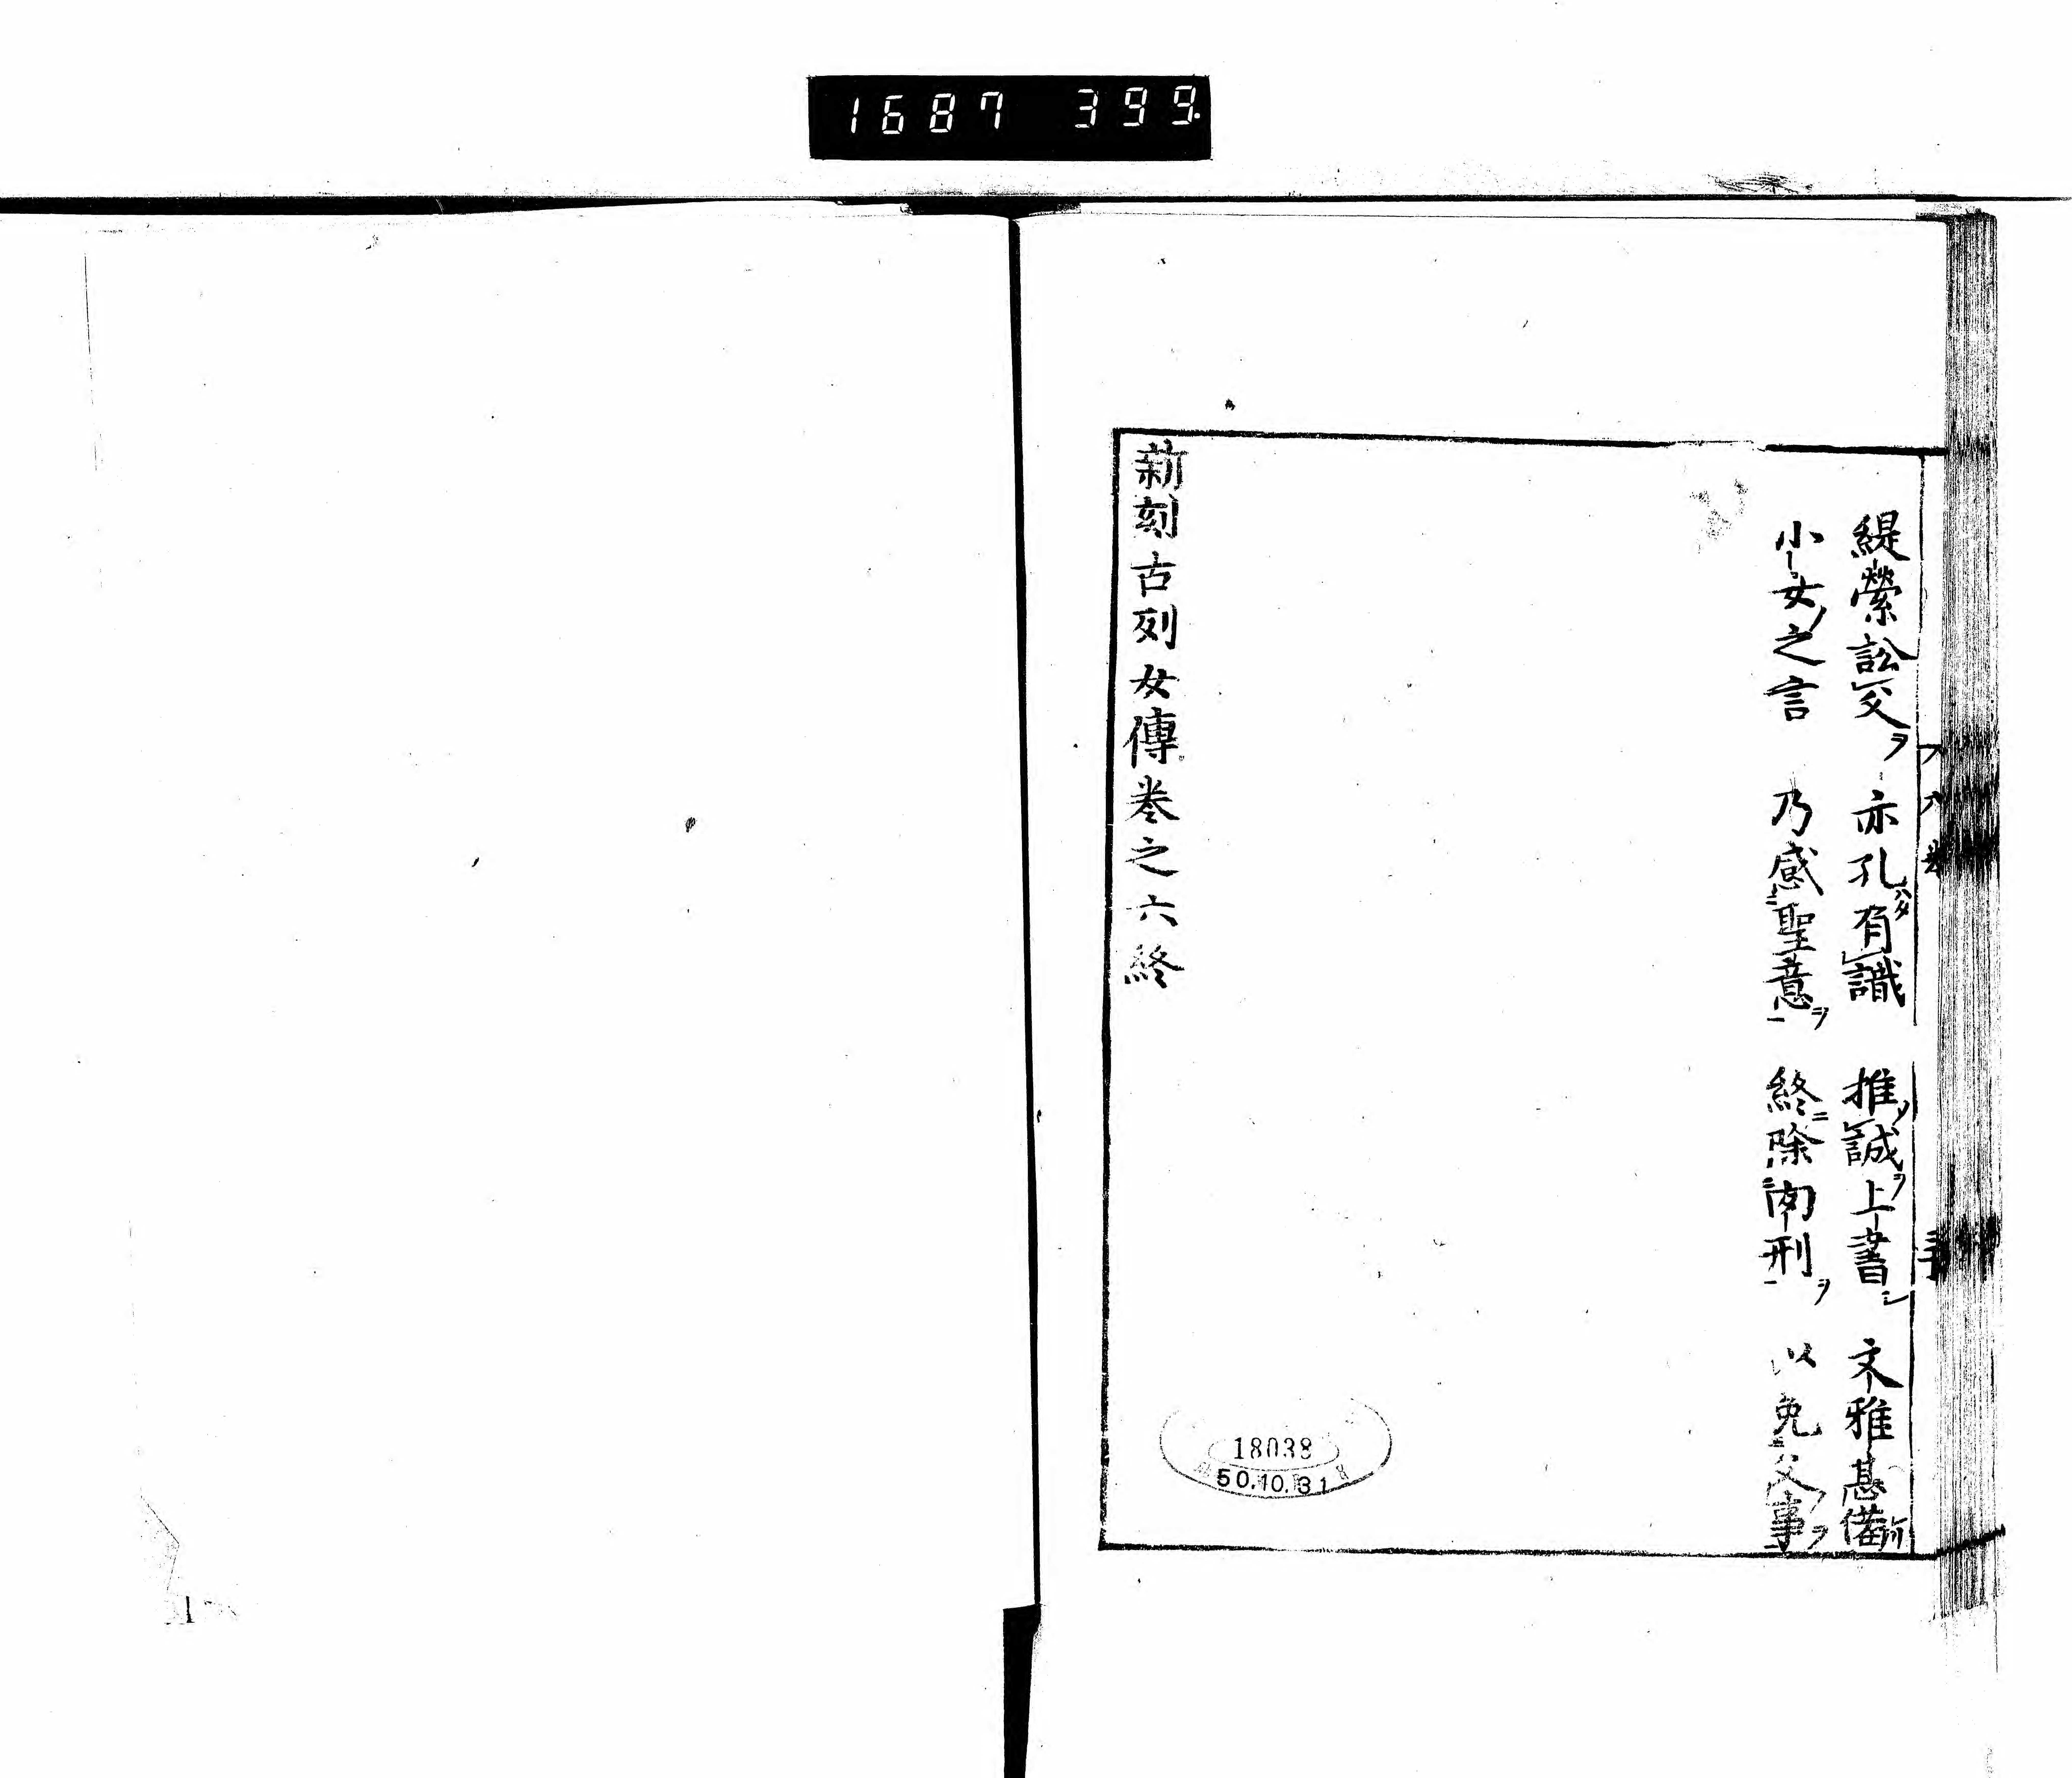 1687 399.
緹縈訟父ヲ 亦孔有識 推誠ヲ上書 文雅甚備
小女ノ之言 乃感聖意ヲ 終ニ除肉刑ヲ 以免父事ヲ
新刻古列女傳卷之六終
18038
50.10.31